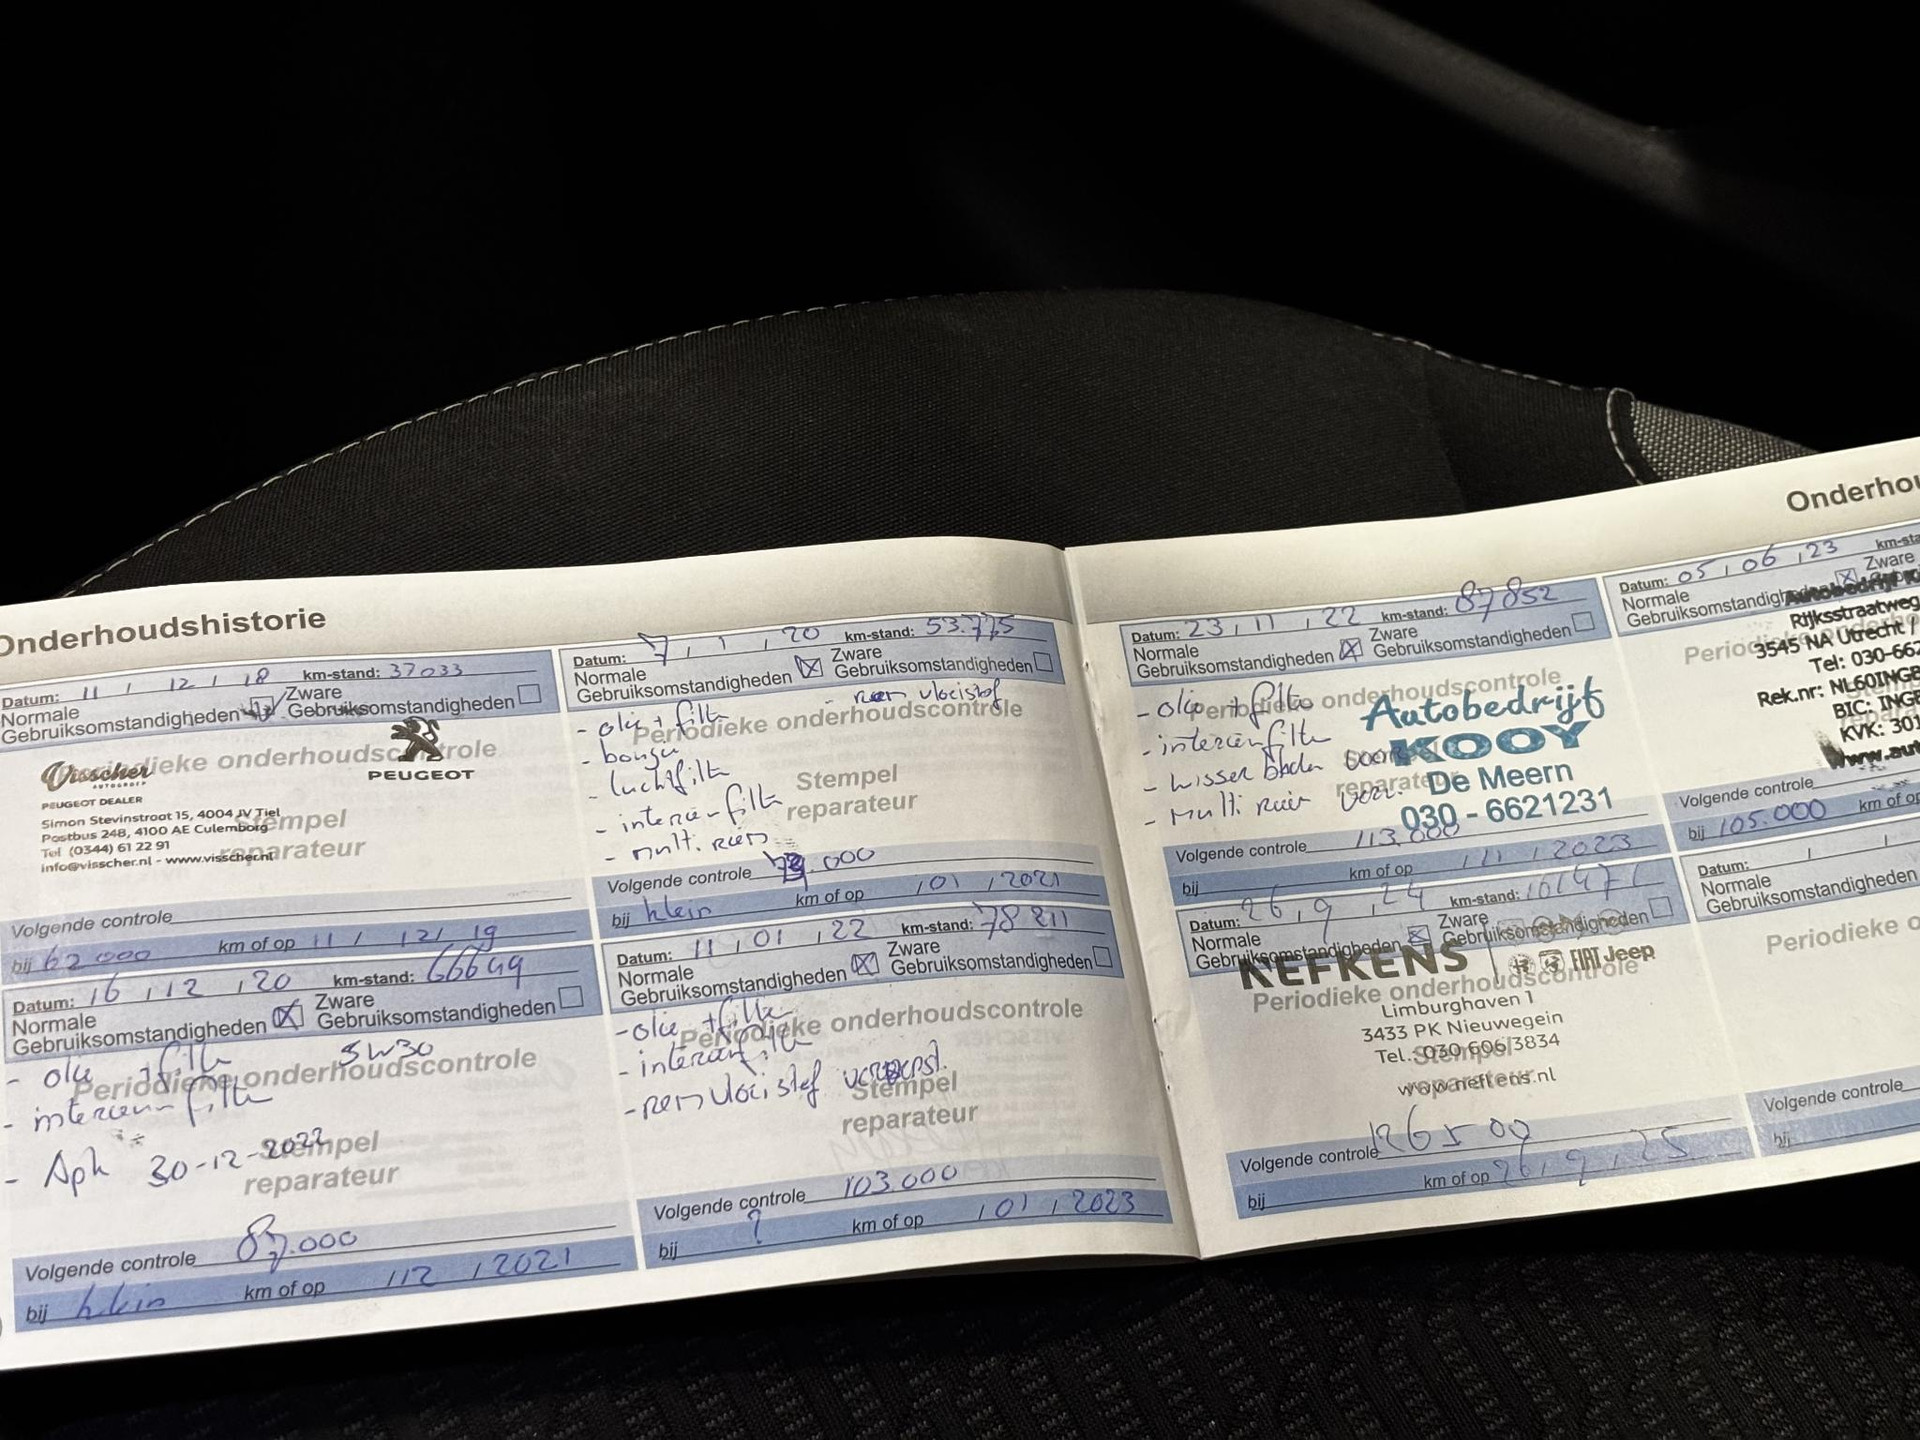 Onderhoudshistorie
Datum: 11 / 12 / 18 km-stand: 37033
Normale
Gebruiksomstandigheden
Zware
Gebruiksomstandigheden
Periodieke onderhoudscontrole
Visscher
AUTOGROEP
PEUGEOT
PEUGEOT DEALER
Simon Stevinstraat 15, 4004 JV Tiel
Postbus 248, 4100 AE Culemborg
Tel (0344) 61 22 91
info@visscher.nl - www.visscher.nl
Stempel
reparateur
Volgende controle
bij 62 000 km of op 11 / 12 / 19
Datum: 16 , 12 , 20 km-stand: 66649
Normale
Gebruiksomstandigheden
Zware
Gebruiksomstandigheden
Periodieke onderhoudscontrole
- olie + filter 5W30
- interieurfilter
- Apk 30-12-2022
Stempel
reparateur
Volgende controle 87.000
bij klein km of op / 12 / 2021
Datum: 7 , 1 , 20 km-stand: 53.775
Normale
Gebruiksomstandigheden
Zware
Gebruiksomstandigheden
Periodieke onderhoudscontrole
- olie + filter
- bougie
- luchtfilter
- interieurfilter
- multi riem
Stempel
reparateur
Volgende controle
bij klein km of op / 01 / 2021
Datum: 11 , 01 , 22 km-stand: 78 211
Normale
Gebruiksomstandigheden
Zware
Gebruiksomstandigheden
Periodieke onderhoudscontrole
- olie + filter
- interieurfilter
- remvloeistof ververst.
Stempel
reparateur
Volgende controle 103.000
bij ? km of op / 01 / 2023
Onderhou
Datum: 23 , 11 , 22 km-stand: 87852
Normale
Gebruiksomstandigheden
Zware
Gebruiksomstandigheden
Periodieke onderhoudscontrole
- olie + filter
- interieurfilter
- wisser bladen voor
- multi riem verv.
Autobedrijf
KOOY
De Meern
030 - 6621231
reparateur
Volgende controle 113.000
bij km of op / 11 / 2023
Datum: 26 , 9 , 24 km-stand:
Normale
Gebruiksomstandigheden
Zware
Gebruiksomstandigheden
NEFKENS
FIAT Jeep
Periodieke onderhoudscontrole
Limburghaven 1
3433 PK Nieuwegein
Tel.: 030 606 3834
www.nefkens.nl
Stempel
reparateur
Volgende controle 126500
bij km of op 26 , 9 , 25
Datum: 05 , 06 , 23 km-sta
Normale
Gebruiksomstandigh
Zware
Autobedrijf
Rijksstraatweg
3545 NA Utrecht /
Tel: 030-662
Rek.nr: NL60INGB
BIC: INGB
KVK: 301
www.aut
Period
Volgende controle
bij 105.000 km of op
Datum: / /
Normale
Gebruiksomstandigheden
Periodieke o
Volgende controle
bij